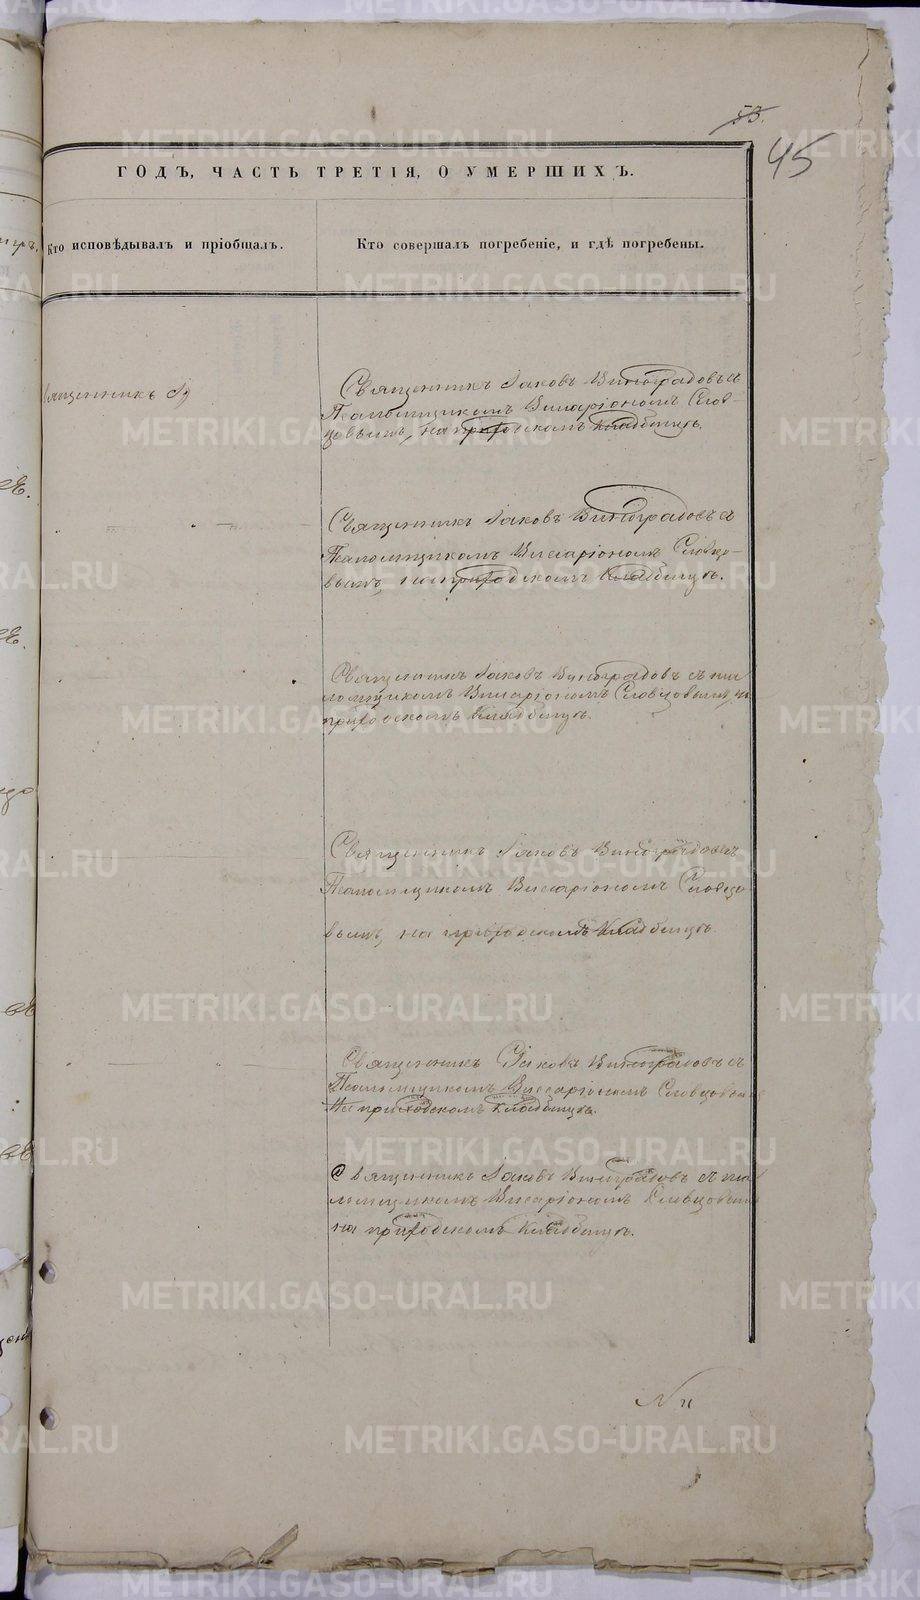 53.
45
ГОДЪ, ЧАСТЬ ТРЕТІЯ, О УМЕРШИХЪ.
Кто исповѣдывалъ и пріобщалъ.
Кто совершалъ погребеніе, и гдѣ погребены.
Священникъ Іаковъ Виноградовъ съ
Псаломщикомъ Висаріономъ Слов-
цовымъ, на приходскомъ кладбищѣ.
Священникъ Іаковъ Виноградовъ съ
Псаломщикомъ Висаріономъ Словцо-
вымъ, на приходскомъ кладбищѣ.
Священникъ Іаковъ Виноградовъ съ пса
ломщикомъ Висаріономъ Словцовымъ, на
приходскомъ кладбищѣ.
Священникъ Іаковъ Виноградовъ съ
Псаломщикомъ Висаріономъ Словцо
вымъ, на приходскомъ кладбищѣ.
Священникъ Іаковъ Виноградовъ съ
Псаломщикомъ Виссаріономъ Словцовымъ
На приходскомъ кладбищѣ.
Священникъ Іаковъ Виноградовъ съ пса
ломщикомъ Висаріономъ Словцовымъ
на приходскомъ кладбищѣ.
METRIKI.GASO-URAL.RU